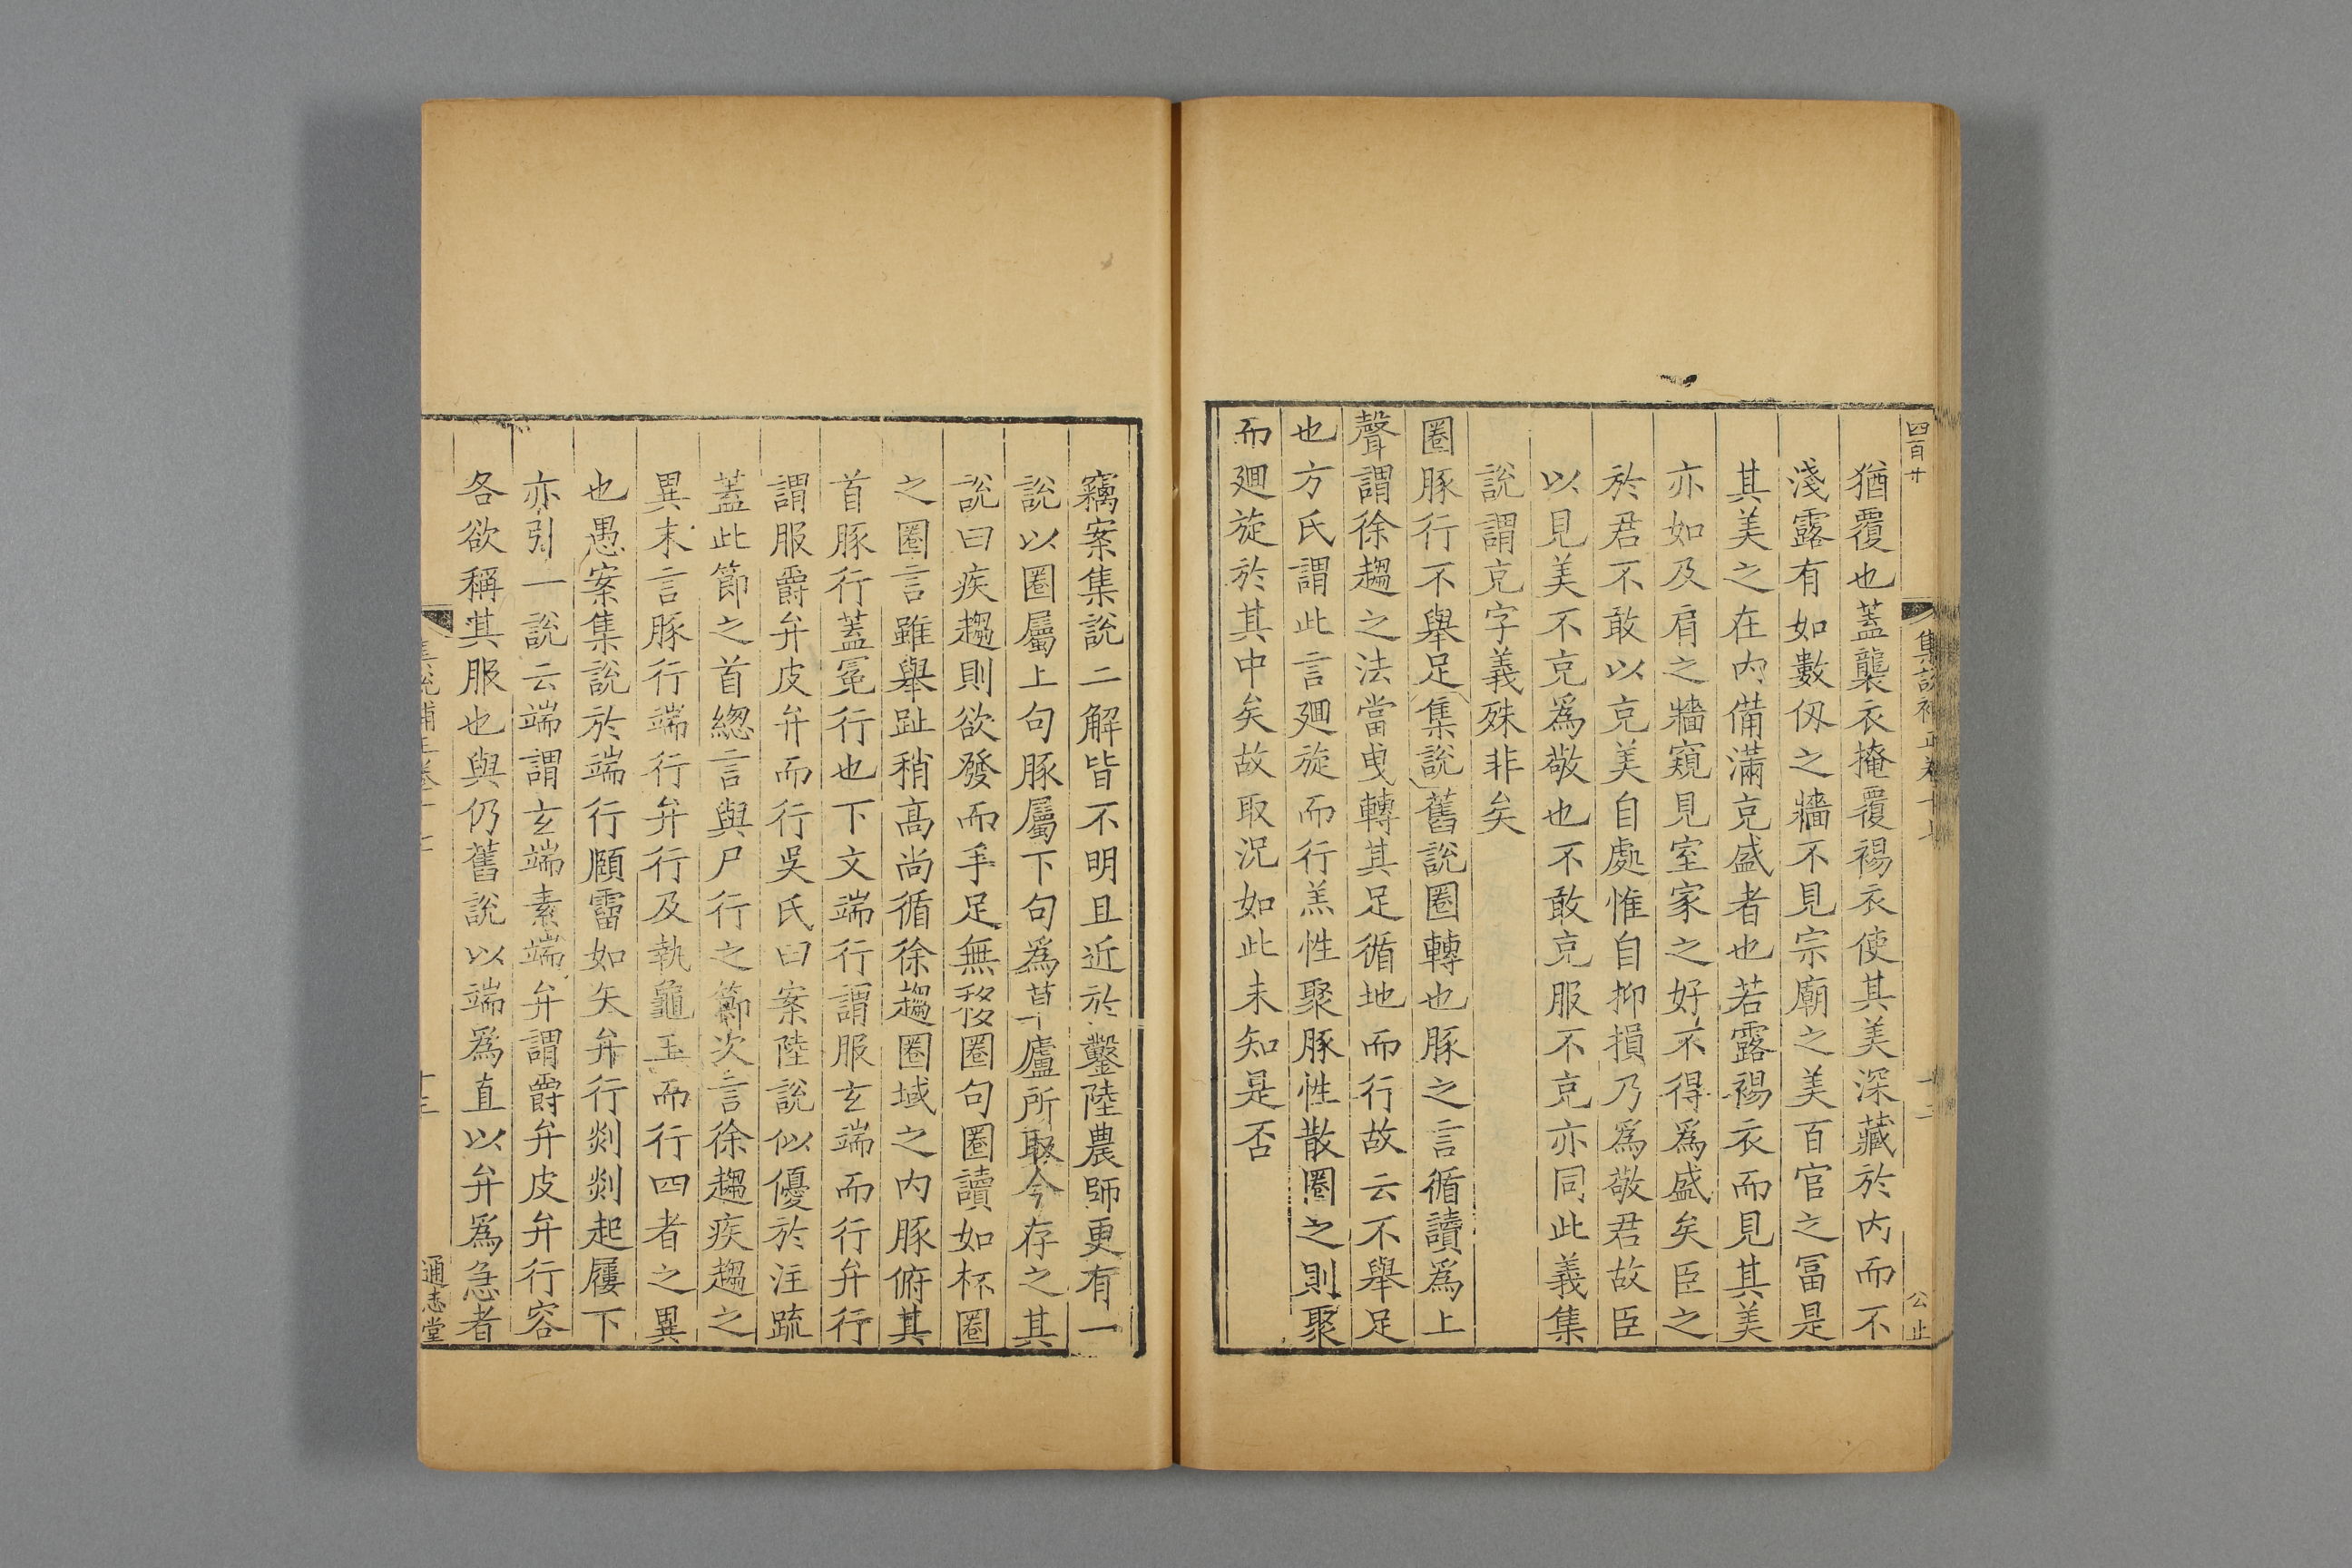 四百廿
猶覆也蓋襲衣掩覆裼衣使其美深藏於内而不
淺露有如數仭之牆不見宗廟之美百官之冨是
其美之在内備滿充盛者也若露裼衣而見其美
亦如及肩之牆窺見室家之好不得爲盛矣臣之
於君不敢以充美自處惟自抑損乃爲敬君故臣
以見美不充爲敬也不敢充服不充亦同此義集
說謂充字義殊非矣
圈豚行不舉足集說舊說圈轉也豚之言循讀爲上
聲謂徐趨之法當曳轉其足循地而行故云不舉足
也方氏謂此言廻旋而行羔性聚豚性散圈之則聚
而廻旋於其中矣故取況如此未知是否
竊案集說二解皆不明且近於鑿陸農師更有一
說以圈屬上句豚屬下句爲草廬所取今存之其
說曰疾趨則欲發而手足無移圈句圈讀如杯圈
之圈言雖舉趾稍高尚循徐趨圈域之内豚俯其
首豚行蓋冕行也下文端行謂服玄端而行弁行
謂服爵弁皮弁而行吳氏曰案陸說似優於注疏
蓋此節之首緫言與尸行之節次言徐趨疾趨之
異末言豚行端行弁行及執龜玉而行四者之異
也愚案集說於端行頤霤如矢弁行剡剡起屨下
亦引一說云端謂玄端素端弁謂爵弁皮弁行容
各欲稱其服也與仍舊說以端爲直以弁爲急者
通志堂